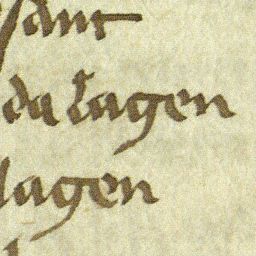 sant
da lagen
lagen